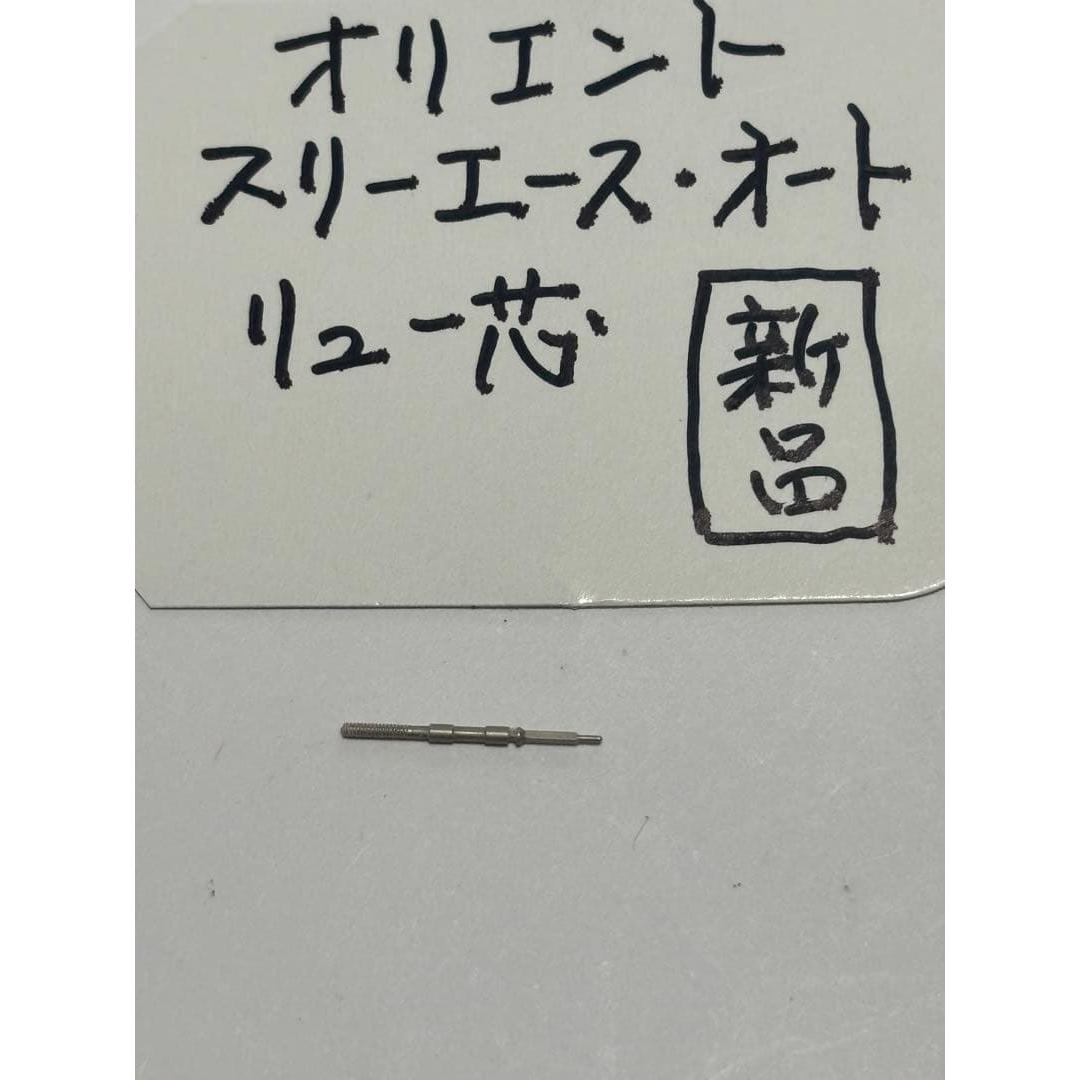 オリエント
スリーエース・オート
リュー芯
新品